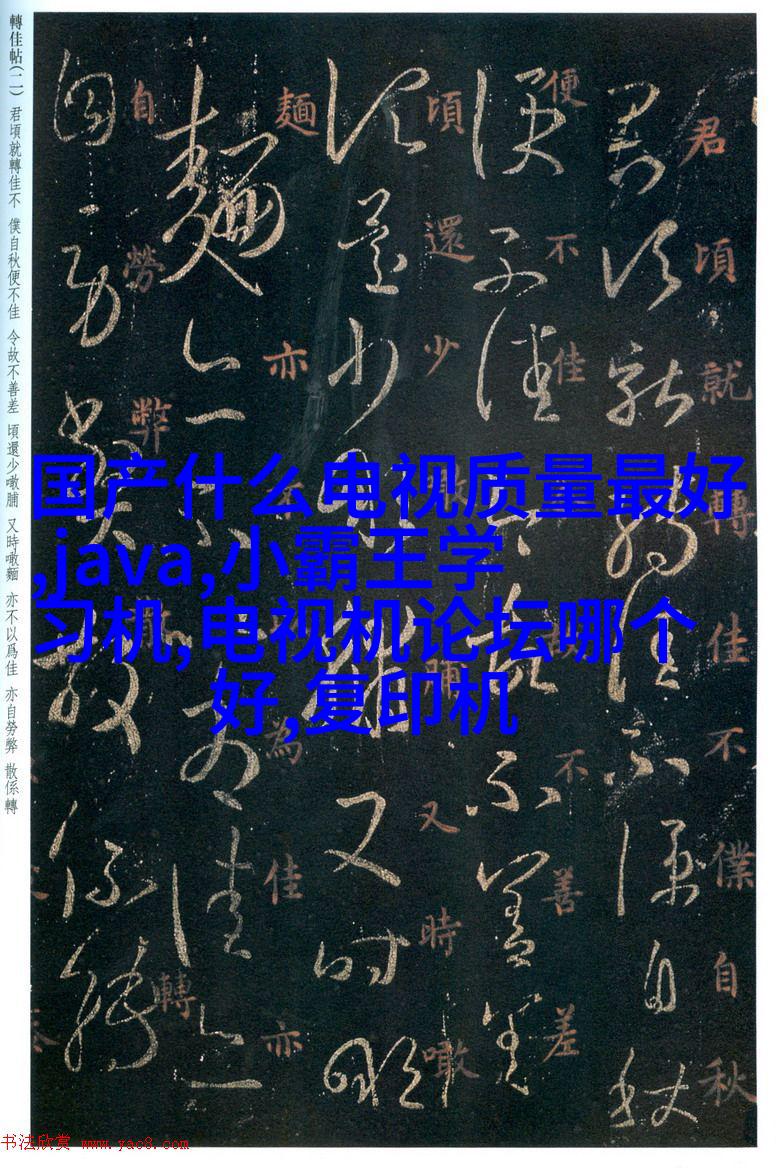 國产什么电视质量最好
,java,小霸王学
习机,电视机论坛哪个
好,复印机
轉佳帖(二) 君頃就轉佳不 僕自秋便不佳 令故不善差 頃還少噉脯 又時噉麵 亦不以爲佳 亦自勞弊 散係轉
君頃就轉佳不僕自秋
便不佳
不善差
頃還少噉脯又時噉
麵亦
為佳亦
自勞弊
轉
书法欣赏 www.yac8.com